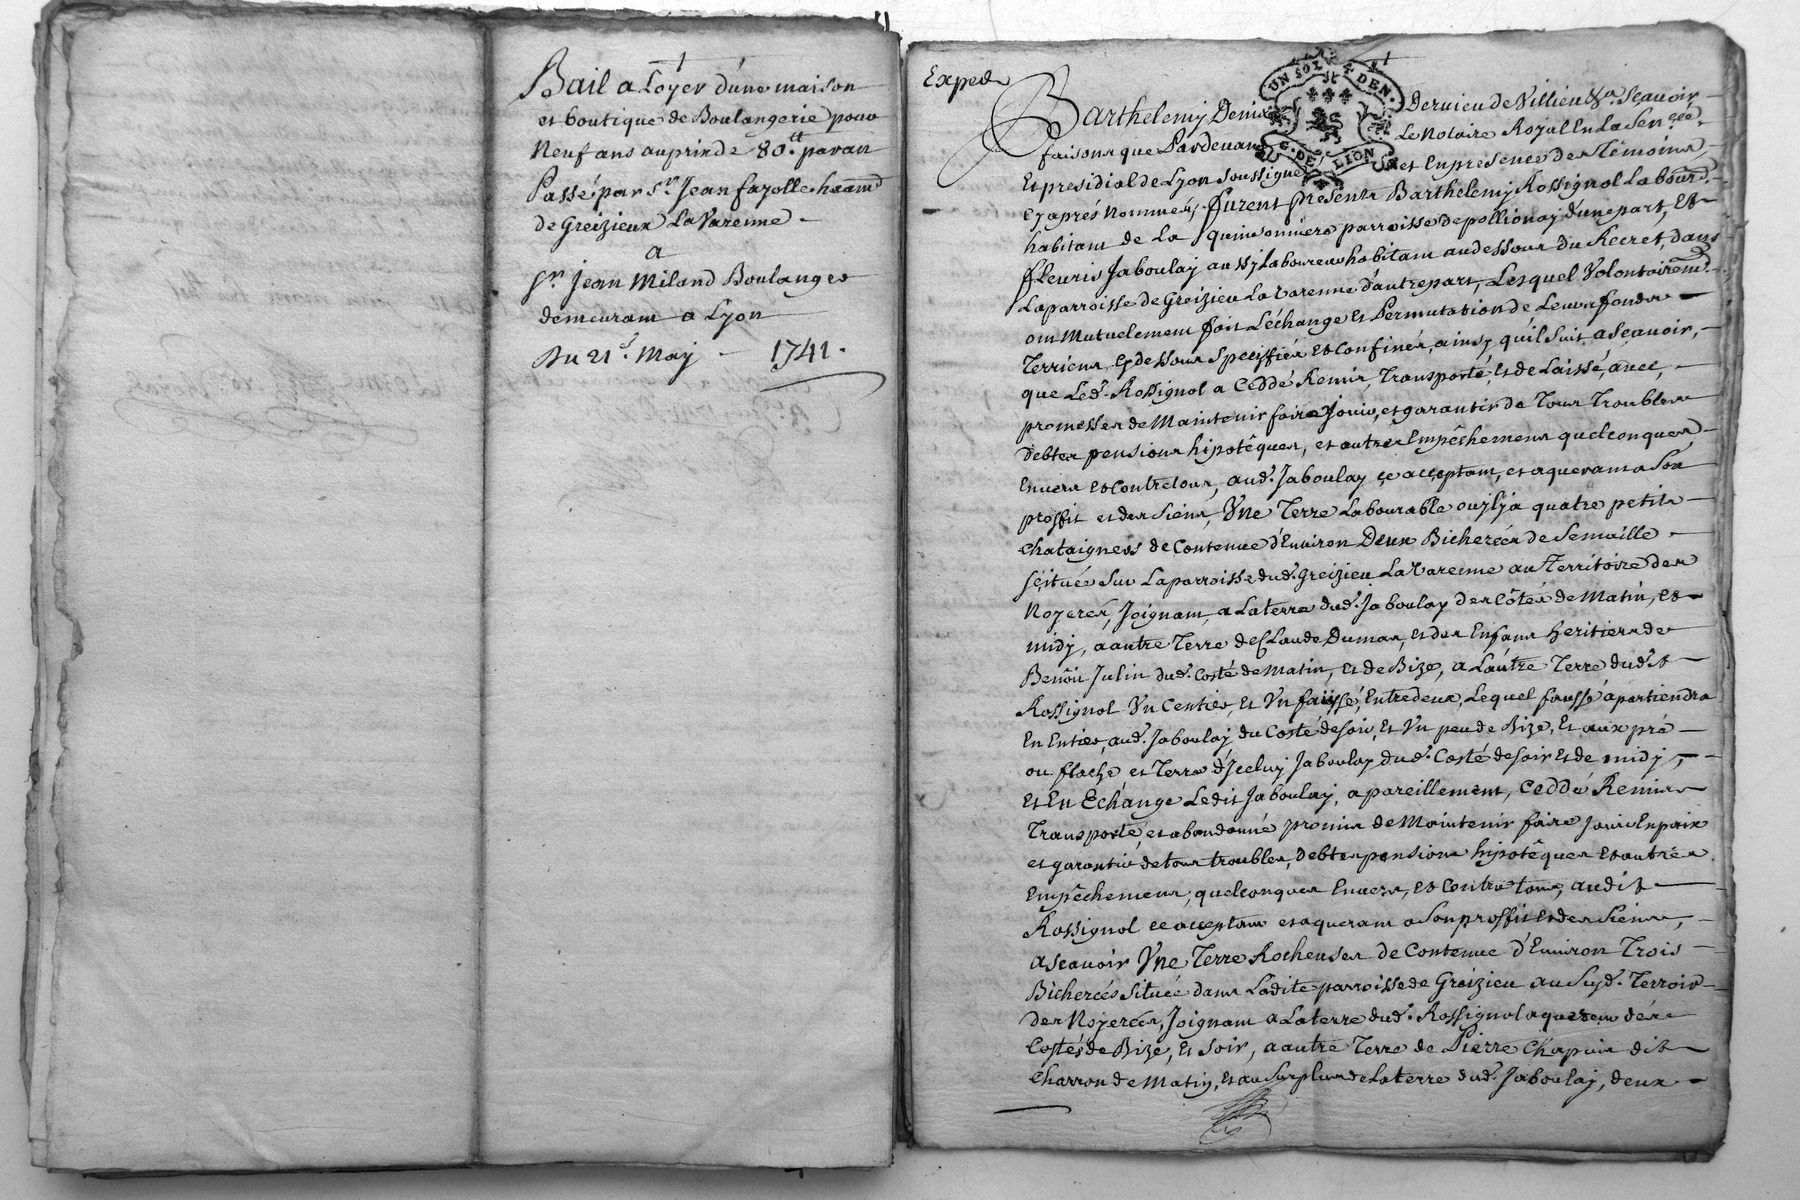 1
Bail a Loyer d'une maison
et boutique de Boulangerie pour
Neuf ans au prix de 80.tt par an
Passé par Sr. Jean fayolle
de Greizieux La Varenne
a
Sr. Jean Miland Boulanger
demeurant a Lyon
Du 21e. Maÿ 1741.
Exped
UN SOL 4 DEN.
G. DE LION
Barthelemy Denis Deruieu de Villieu &a. Scauoir
faisons que Pardeuant Le Notaire Royal En La Senée.
Et presidial de Lyon soussigné et En presence des Témoins
Cy aprés Nommés, furent presents Barthelemy Rossignol Labourr.
habitant de La quinsonniere parroisse de pollionaÿ d'une part, Et
fleuris Jaboulaÿ aussy Laboureur habitant au dessous du Recret, dans
La parroisse de Greizieu La Varenne d'autre part, Lesquel Volontairemt.
ont Mutuelement fait L'échange et Permutation de Leurs fonds
Terriens Cy dessous Speciffiés et Confinés, ainsy qu'il Suit, a Sçauoir,
que Led. Rossignol a Ceddé Remis, Transporté, et de Laissé, auec,
promesses de Maintenir faire Jouir, et garantir de Tous Troubles
debtes pensions hipotêques, et autres Empêchemens quelconques,
Enuers et Contre tous, aud. Jaboulay ce acceptant, et aquerant a Son
proffit et des Siens, Vne Terre Labourable ou jl ÿ a quatre petits
Chataigners de Contenue d'Enuiron Deux Bicherées de Semaille
Scituée Sur La parroisse dud. Greizieu La Varenne au Territoire des
Noyerés, Joignant, a La terre dud. Jaboulay des Côtés de Matin, et
midy, a autre Terre de Claude Dumas, et des Enfans heritiers de
Benôit Julin dud. Costé de Matin, et de Bize, a L'autre Terre dudit
Rossignol Vn Centier, Et Vn faussé, Entredeux, Lequel faussé apartiendra
En Entier, aud. Jaboulay du Costé de Soir, Et Vn peu de Bize, Et aux pré
ou flache et Terre d'Jceluy Jaboulay dud. Costé de soir Et de midy,
Et En Echange Ledit Jaboulay, a pareillement, Ceddé Remis
Transporté, et abandonné promis de Maintenir faire Jouir En paix
et garantir de tous troubles, debtes pensions hipotêques Et autres
Empêchemens, quelconques Enuers, et Contre tous, audit
Rossignol ce acceptant et aquerant a Son proffit et des Siens,
a Scauoir Vne Terre Rocheuses de Contenue d'Enuiron Trois
Bicherées Située dans Ladite parroisse de Greizieu au Susd. Terroir
des Noyerées, Joignant a La terre dud. Rossignol aquereur des
Costés de Bize, Et Soir, a autre Terre de Pierre Chapuis dit
Charron de Matin, Et au Surplus de La terre dud. Jaboulay, deux